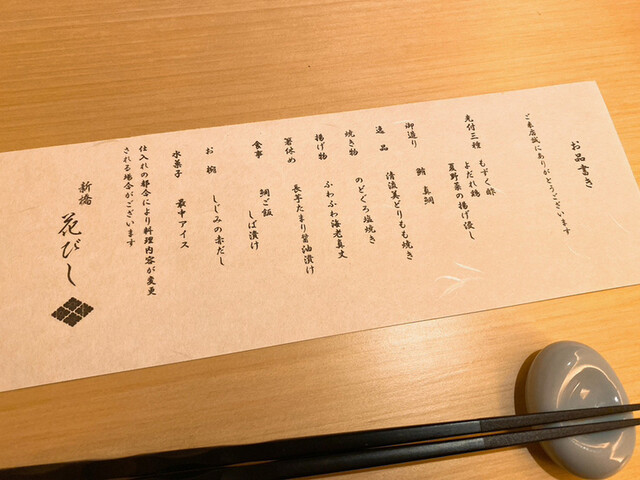 お品書き
ご来店誠にありがとうございます
先付三種 もずく酢
よだれ鶏
夏野菜の揚げ浸し
御造り 鮪 真鯛
逸品 清流美どりもも焼き
焼き物 のどぐろ塩焼き
揚げ物 ふわふわ海老真丈
箸休め 長芋たまり醤油漬け
食事 鯛ご飯
しば漬け
お椀 しじみの赤だし
水菓子 最中アイス
仕入れの都合により料理内容が変更
される場合がございます
新橋 花びし